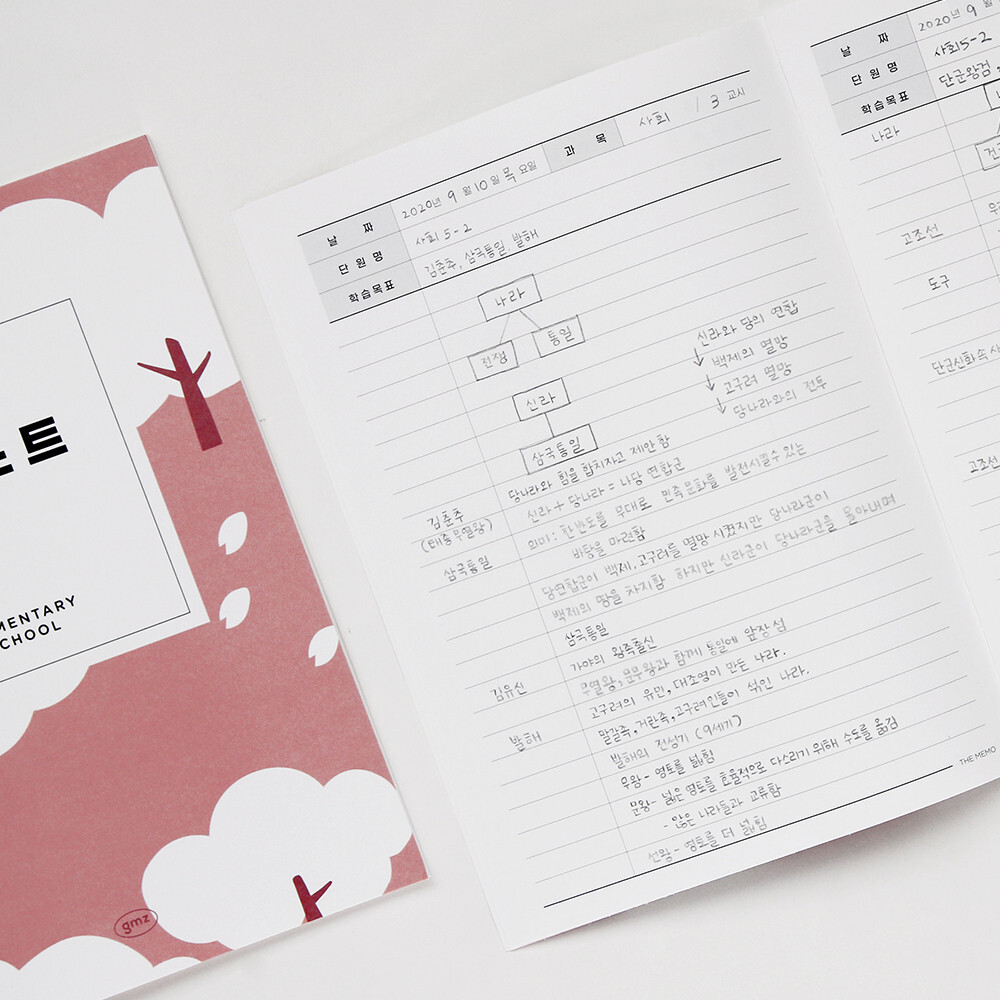 노트
MENTARY
CHOOL
gmz
날 짜 2020년 9 월 10 일 목 요일 과 목 사회 / 3 교시
단 원 명 사회 5-2
학습목표 김춘추, 삼국통일, 발해
나라
전쟁 통일
신라
삼국통일
신라와 당의 연합
↓ 백제의 멸망
↓ 고구려 멸망
↓ 당나라와의 전투
김춘추
(태종무열왕)
당나라와 힘을 합치자고 제안함
신라 + 당나라 = 나당 연합군
의미 : 한반도를 무대로 민족문화를 발전시킬수 있는
바탕을 마련함
삼국통일
당연합군이 백제, 고구려를 멸망시켰지만 당나라군이
백제의 땅을 차지함 하지만 신라군이 당나라군을 몰아내며
삼국통일
김유신
가야의 왕족출신
무열왕, 문무왕과 함께 통일에 앞장섬
발해
고구려의 유민, 대조영이 만든 나라.
말갈족, 거란족, 고구려인들이 섞인 나라.
발해의 전성기 (9세기)
무왕 - 영토를 넓힘
문왕 - 넓은 영토를 효율적으로 다스리기 위해 수도를 옮김
- 많은 나라들과 교류함
선왕 - 영토를 더 넓힘
THE MEMO
날 짜 2020년 9 월
단 원 명 사회5-2
학습목표 단군왕검
나라
고조선
도구
단군신화속
고조선